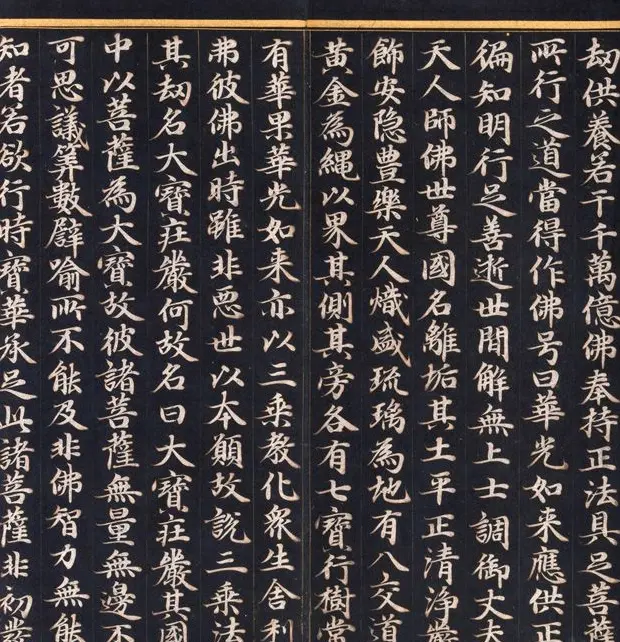 劫供養若干千萬億佛奉持正法具足菩薩
所行之道當得作佛号曰華光如来應供正
徧知明行足善逝世間解無上士調御丈夫
天人師佛世尊國名離垢其土平正清淨嚴
飾安隐豊樂天人熾盛琉璃為地有八交道
黄金為繩以界其側其旁各有七寶行樹常
有華果華光如来亦以三乘教化衆生舍利
弗彼佛出時雖非惡世以本願故說三乘法
其劫名大寶莊嚴何故名曰大寶莊嚴其國
中以菩薩為大寶故彼諸菩薩無量無邊不
可思議筭數譬喻所不能及非佛智力無能
知者若欲行時寶華承足此諸菩薩非初發